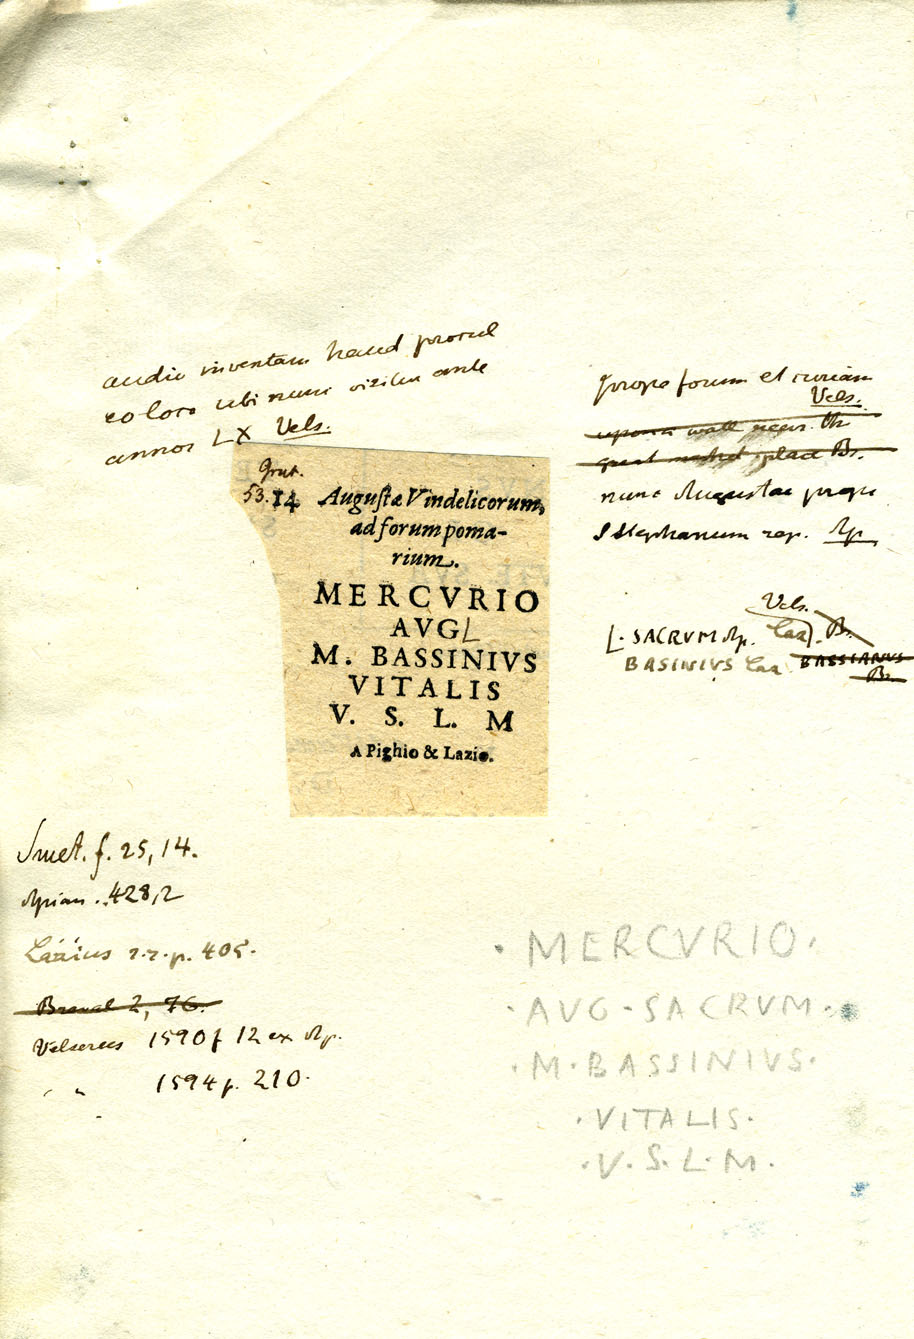 audio inventam haud procul
eo loco ubi nunc visitur ante
annos LX Vels.
propre forum et curiam
Vels.
upon a wall near the
great market place Br.
nunc Augustae prope
S Stephanum rep. Ap.
Grut.
53.14 Augustæ Vindelicorum,
ad forum poma-
rium.
MERCVRIO
AVG L
M. BASSINIVS
VITALIS
V. S. L. M
A Pighio & Lazio.
Vels.
L. SACRVM Ap. Laz). B.
BASINIVS Laz BASSIANVS
B.
Smet. f. 25, 14.
Apian. 428,2
Lazius r.r. p. 405.
Breval 2, 76.
Velserus 1590 f 12 ex Ap.
" 1594 p. 210.
· MERCVRIO ·
· AVG · SACRVM ·
· M · BASSINIVS ·
· VITALIS ·
· V · S · L · M ·